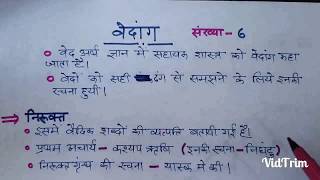 वेदांग संख्या - 6
वेद अर्थ ज्ञान में सहायक शास्त्र को वेदांग कहा
जाता है।
वेदों को सही ढंग से समझने के लिये इनकी
रचना हुयी।
⇒ निरूक्त
इसमें वैदिक शब्दों की व्यत्पत्ति बतायी गई है।
प्रथम आचार्य - कश्यप ऋषि (इनकी रचना - निघंटु)
निरूक्त ग्रंथ की रचना - यास्क ने की।
VidTrim